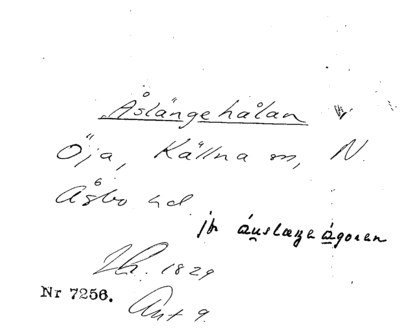 Åslängehålan
Öja, Källna sn, N.
Åsbo hd.
jfr áuslæŋeágoren
Lh. 1829
Nr 7256. Ant 9.